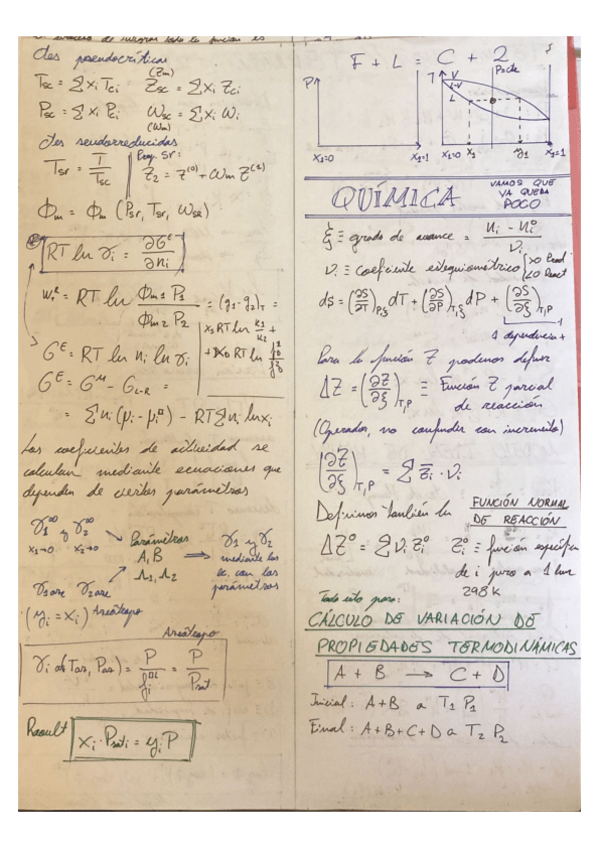 ctes pseudocríticas
(Zm)
Tsc = Σ xi Tci   Zsc = Σ xi Zci
Psc = Σ xi Pci   ωsc = Σ xi ωi
(ωm)
ctes seudorreducidas
Tsr = T/Tsc
Z2 = Z^(0) + ωm Z^(1)
Φm = Φm (Psr, Tsr, ωsr)
RT ln γi = ∂G^E/∂ni
RT ln Φm1 P1 / Φm2 P2 = (g1 - g2)T =
G^E = RT Σ ni ln γi
G^E = G^M - GL-R =
= Σ ni (μi - μi□) - RT Σ ni ln xi
Los coeficientes de actividad se
calculan mediante ecuaciones que
dependen de ciertos parámetros
γ1^∞ y γ2^∞
x1→0   x2→0
Parámetros
A, B
Λ1, Λ2
γ1 y γ2
mediante las
ec. con los
parámetros
γ1aze   γ2aze
(yi = xi) Azeótropo
Azeótropo
γi az(Taz, Paz) = P/fi□L = P/Psat
Raoult
xi · Psati = yi P
F + L = C + 2
P   T   V   L-V   L   P=cte
x1=0   x1=1   x1=0   x1   y1   x1=1
QUÍMICA
VAMOS QUE
YA QUEDA
POCO
ξ ≡ grado de avance = ni - ni° / νi
νi ≡ coeficiente estequiométrico { >0 Prod
<0 React
dS = (∂S/∂T)P,ξ dT + (∂S/∂P)T,ξ dP + (∂S/∂ξ)T,P
1 dependencia +
Para la función Z podemos definir
ΔZ = (∂Z/∂ξ)T,P ≡ Función Z parcial
de reacción
(Operador, no confundir con incremento)
(∂Z/∂ξ)T,P = Σ Z̄i · νi
Definimos también la
FUNCIÓN NORMAL
DE REACCIÓN
ΔZ° = Σ νi Zi°   Zi° ≡ función específica
de i puro a 1 bar
298 K
Todo esto para:
CÁLCULO DE VARIACIÓN DE
PROPIEDADES TERMODINÁMICAS
A + B → C + D
Inicial: A+B a T1 P1
Final: A+B+C+D a T2 P2